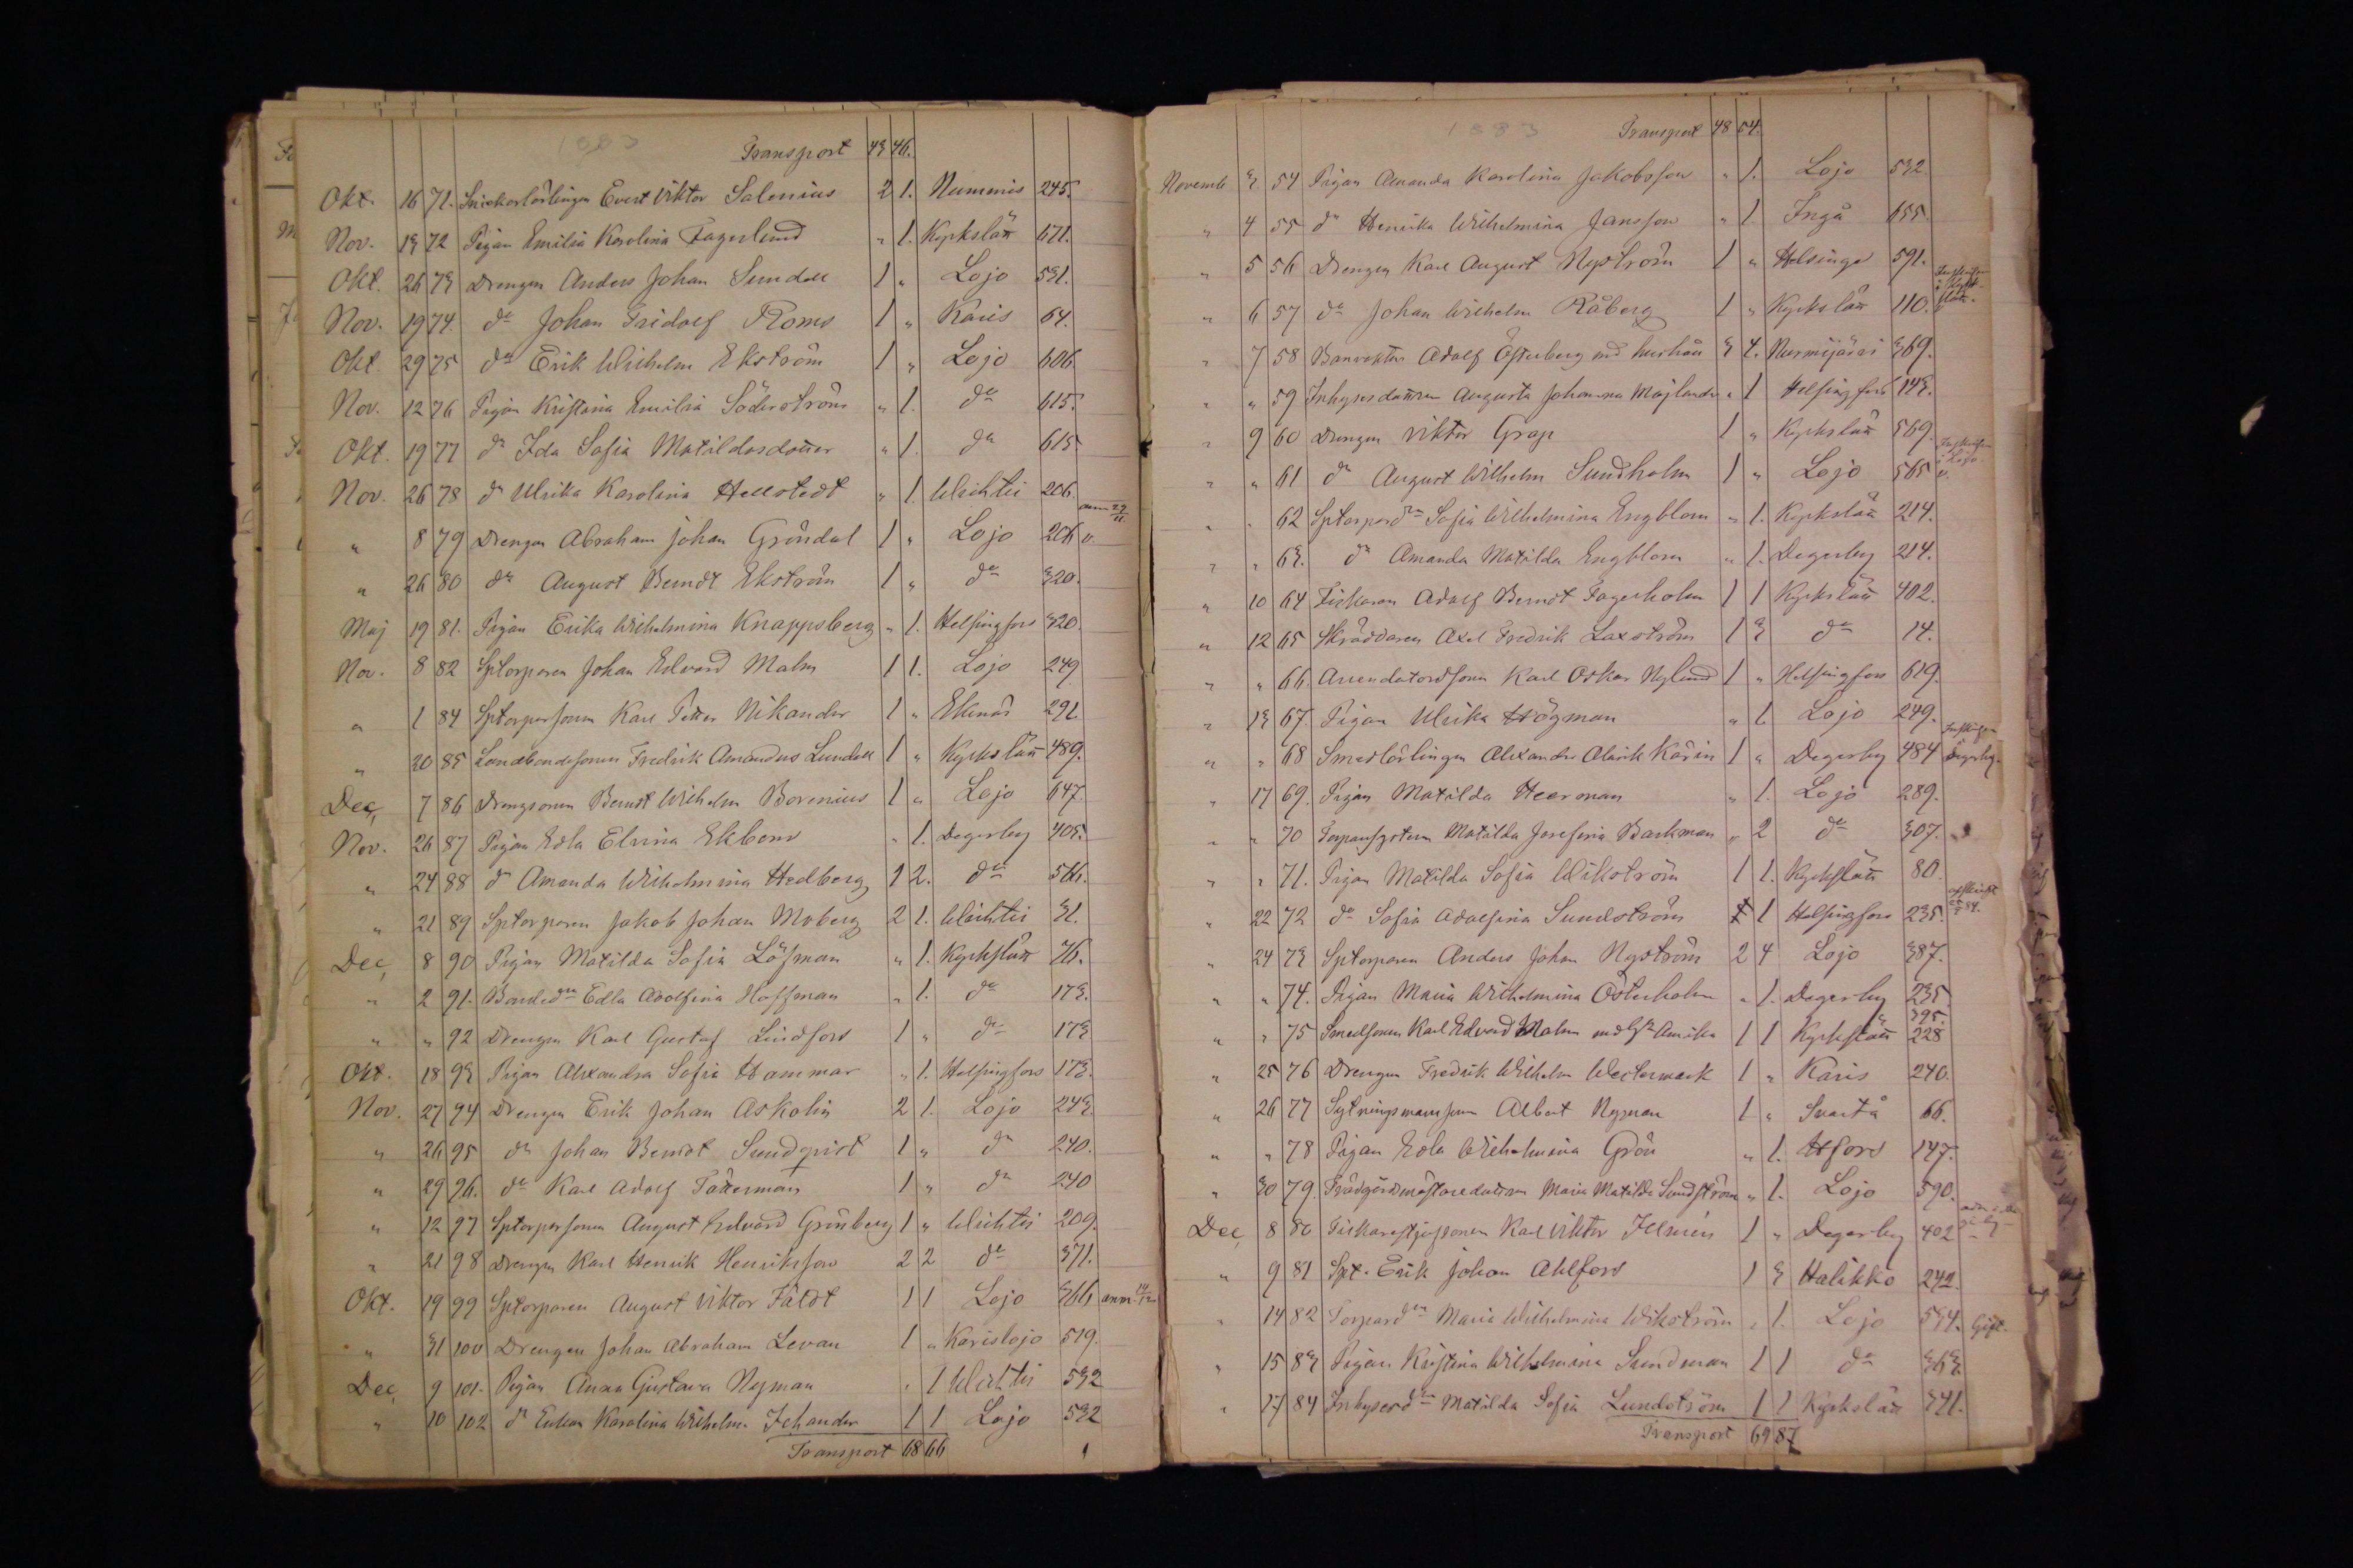 1883
Transport 43 46.
Okt. 16 71. Snickarlärlingen Evert Viktor Salenius 2 1. Nummis 245.
Nov. 13 72 Pigan Emilia Karolina Fagerlund " 1. Kyrkslätt 671.
Okt. 26 73 Drengen Anders Johan Sundell 1 " Lojo 531.
Nov. 19 74. do Johan Fridolf Roms 1 " Karis 64.
Okt. 29 75 do Erik Wilhelm Ekström 1 " Lojo 606.
Nov. 12 76 Pigan Kristina Emilia Söderström " 1. do 615.
Okt. 19 77 do Ida Sofia Matildasdotter " 1. do 615.
Nov. 26 78 do Ulrika Karolina Hellstedt " 1. Wichtis 206.
" 8 79 Drengen Abraham Johan Gröndal 1 " Lojo 206 v. anm 29/11.
" 26 80 do August Berndt Ekström 1 " do 320.
Maj 19 81. Pigan Erika Wilhelmina Knappsberg " 1. Helsingfors 320.
Nov. 8 82 Sptorparen Johan Edvard Malm 1 1. Lojo 249
" 1 84 Sptorparsonen Karl Petter Nikander 1 " Ekenäs 291.
" 20 85 Landbondesonen Fredrik Amandus Lundell 1 " Kyrkslätt 489.
Dec, 7 86 Drengsonen Berndt Wilhelm Borenius 1 " Lojo 647.
Nov. 26 87 Pigan Edla Elvira Ekbom " 1. Degerby 403.
" 24 88 do Amanda Wilhelmina Hedberg 1 2. do 566.
" 21 89 Sptorparen Jakob Johan Moberg 2 1. Wichtis 31.
Dec, 8 90 Pigan Matilda Sofia Löfman " 1. Kyrkslätt 76.
" 2 91. Bondedtr Edla Adolfina Hoffman " 1. do 173.
" " 92 Drengen Karl Gustaf Lindfors 1 " do 173
Okt. 18 93 Pigan Alexandra Sofia Hammar " 1. Helsingfors 173.
Nov. 27 94 Drengen Erik Johan Askolin 2 1. Lojo 243.
" 26 95 do Johan Berndt Sundqvist 1 " do 240.
" 29 96. do Karl Adolf Täckerman 1 " do 240
" 12 97 Sptorparsonen August Edvard Grönberg 1 " Wichtis 209.
" 21 98 Drengen Karl Henrik Henriksson 2 2 do 371.
Okt. 19 99 Sptorparen August Viktor Fäldt 1 1 Lojo 366 anm. 14/12
" 31 100 Drengen Johan Abraham Levan 1 " Karislojo 519.
Dec, 9 101. Pigan Anna Gustava Nyman " 1 Wichtis 532
" 10 102 do Karolina Wilhelm. Jehander 1 1 Lojo 532
Transport 68 66
1883
Transport 48 54.
Novemb 3 54 Pigan Amanda Karolina Jakobsson " 1. Lojo 532
" 4 55 do Henrika Wilhelmina Jansson " 1. Ingå 655.
" 5 56 Drengen Karl August Nyström 1 " Helsinge 591.
" 6 57 do Johan Wilhelm Råberg 1 " Kyrkslätt 110.
" 7 58 Banvakten Adolf Österberg md hushåll 3 4. Nurmijärvi 369.
" " 59 Inhysesdottren Augusta Johanna Majlander " 1 Helsingfors 143.
" 9 60 Drengen Viktor Grap 1 " Kyrkslätt 569.
" " 61 do August Wilhelm Sundholm 1 " Lojo 565
" " 62 Sptorpardtr Sofia Wilhelmina Engblom " 1. Kyrkslätt 214.
" " 63. do Amanda Matilda Engblom " 1. Degerby 214.
" 10 64 Fiskaren Adolf Berndt Fagerholm 1 1 Kyrkslätt 402.
" 12 65 Skräddaren Axel Fredrik Laxström 1 3 do 14.
" " 66. Arrendatordsonen Karl Oskar Nylund 1 " Helsingfors 619.
" 13 67. Pigan Ulrika Högman " 1. Lojo 249.
" " 68 Smedlärlingen Alexander Alarik Karin 1 " Degerby 484 Degerby.
" 17 69. Pigan Matilda Heerman " 1. Lojo 289.
" " 70 Matilda Josefina Backman " 2 do 307.
" " 71. Pigan Matilda Sofia Wikström 1 1. Kyrkslätt 80.
" 22 72 do Sofia Adolfina Sundström 1 Helsingfors 235.
" 24 73 Sptorparen Anders Johan Nyström 2 4 Lojo 387.
" " 74. Pigan Maria Wilhelmina Österholm " 1. Degerby 235
395.
" " 75 Smedsonen Karl Edvard Malm md Amerika 1 1 Kyrkslätt 228
" 25 76 Drengen Fredrik Wilhelm Westermark 1 " Karis 240.
" 26 77 Sytningsmanssonen Albert Nyman 1 " Svartå 66.
" " 78 Pigan Edla Wilhelmina Grön " 1. Hfors 147.
" 30 79. Trädgårdsmästaredottren Maria Matilda Sundström " 1. Lojo 590.
Dec, 8 80 Karl Viktor Illmén 1 " Degerby 402
" 9 81 Spt. Erik Johan Ahlfors 1 3 Halikko 242.
" 14 82 Torpardtr Maria Wilhelmina Wikström " 1. Lojo 534. Gift.
" 15 83 Pigan Kristina Wilhelmina Sundman 1 1 do 363.
" 17 84 Inhysesdtr Matilda Sofia Lundström 1 1 Kyrkslätt 341.
Transport 69 87